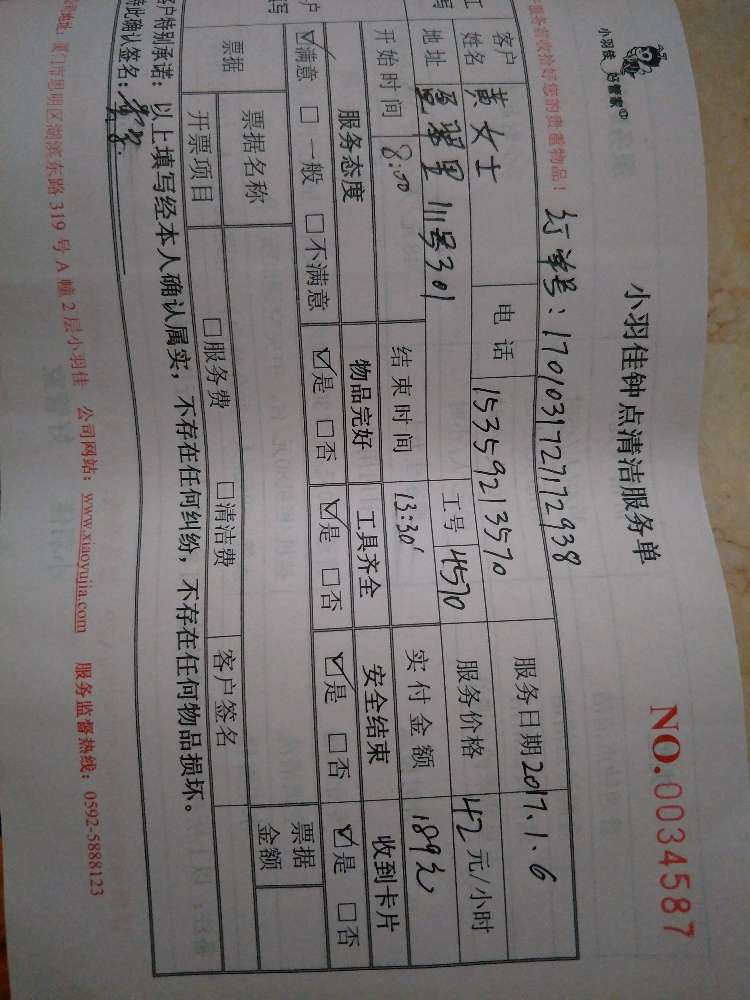 小羽佳 好管家
小羽佳钟点清洁服务单
NO.0034587
收拾好您的贵重物品！
订单号：1701031727172938
客户姓名 黄女士 电话 15359213570 服务日期 2017.1.6
地址 111号301 工号 4570 服务价格 42 元/小时
开始时间 8:00 结束时间 13:30 实付金额 189元
服务态度 物品完好 工具齐全 安全结束 收到卡片
☑满意 □一般 □不满意 ☑是 □否 ☑是 □否 ☑是 □否 ☑是 □否
票据 票据名称 票据金额
开票项目 □服务费 □清洁费 客户签名
客户特别承诺：以上填写经本人确认属实，不存在任何纠纷，不存在任何物品损坏。
特此确认签名：
公司地址：厦门市思明区湖滨东路 319 号 A 幢 2 层小羽佳 公司网站：www.xiaoyujia.com 服务监督热线：0592-5888123